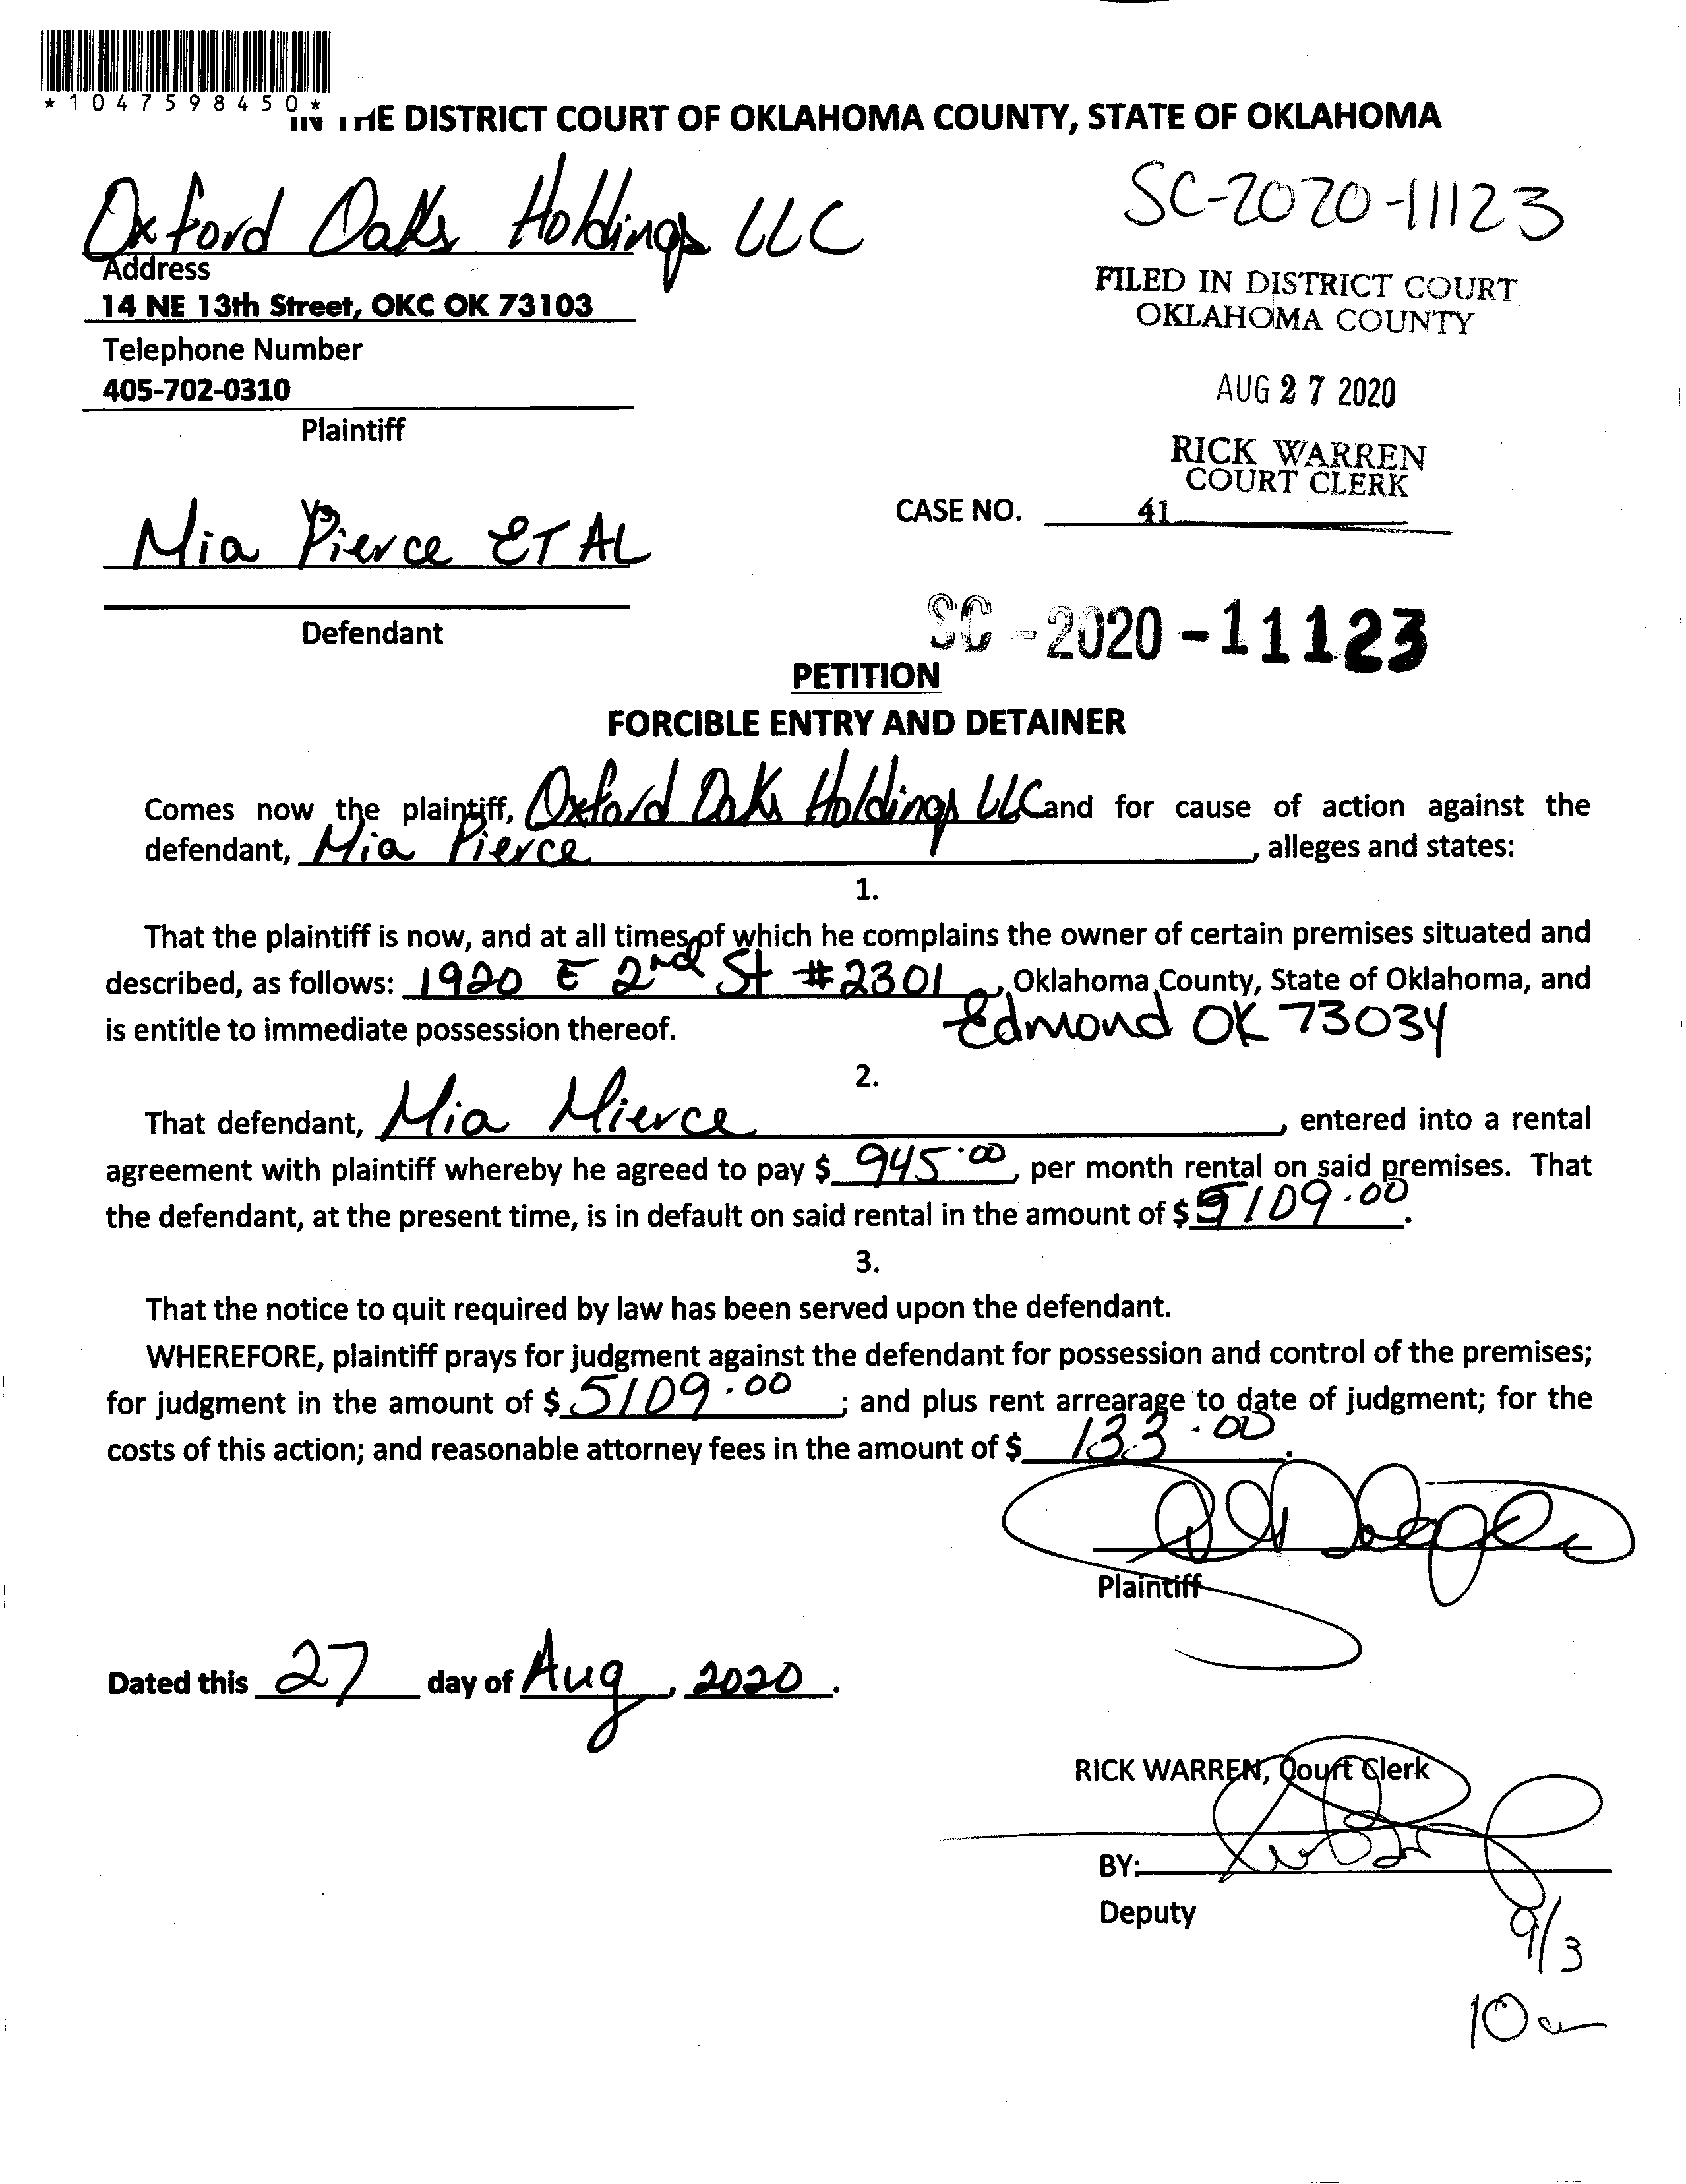 *1047598450*
IN THE DISTRICT COURT OF OKLAHOMA COUNTY, STATE OF OKLAHOMA
Oxford Oaks Holdings LLC
SC-2020-11123
Address
14 NE 13th Street, OKC OK 73103
FILED IN DISTRICT COURT
OKLAHOMA COUNTY
Telephone Number
405-702-0310
AUG 27 2020
Plaintiff
RICK WARREN
COURT CLERK
vs
CASE NO. 41
Mia Pierce ET AL
Defendant
SC-2020-11123
PETITION
FORCIBLE ENTRY AND DETAINER
Comes now the plaintiff, Oxford Oaks Holdings LLC and for cause of action against the
defendant, Mia Pierce, alleges and states:
1.
That the plaintiff is now, and at all times of which he complains the owner of certain premises situated and
described, as follows: 1920 E 2nd St #2301, Oklahoma County, State of Oklahoma, and
Edmond OK 73034
is entitle to immediate possession thereof.
2.
That defendant, Mia Mierce, entered into a rental
agreement with plaintiff whereby he agreed to pay $ 945.00, per month rental on said premises. That
the defendant, at the present time, is in default on said rental in the amount of $ 5109.00.
3.
That the notice to quit required by law has been served upon the defendant.
WHEREFORE, plaintiff prays for judgment against the defendant for possession and control of the premises;
for judgment in the amount of $ 5109.00; and plus rent arrearage to date of judgment; for the
costs of this action; and reasonable attorney fees in the amount of $ 133.00.
Plaintiff
Dated this 27 day of Aug, 2020.
RICK WARREN, Court Clerk
BY:
Deputy
9/3
10